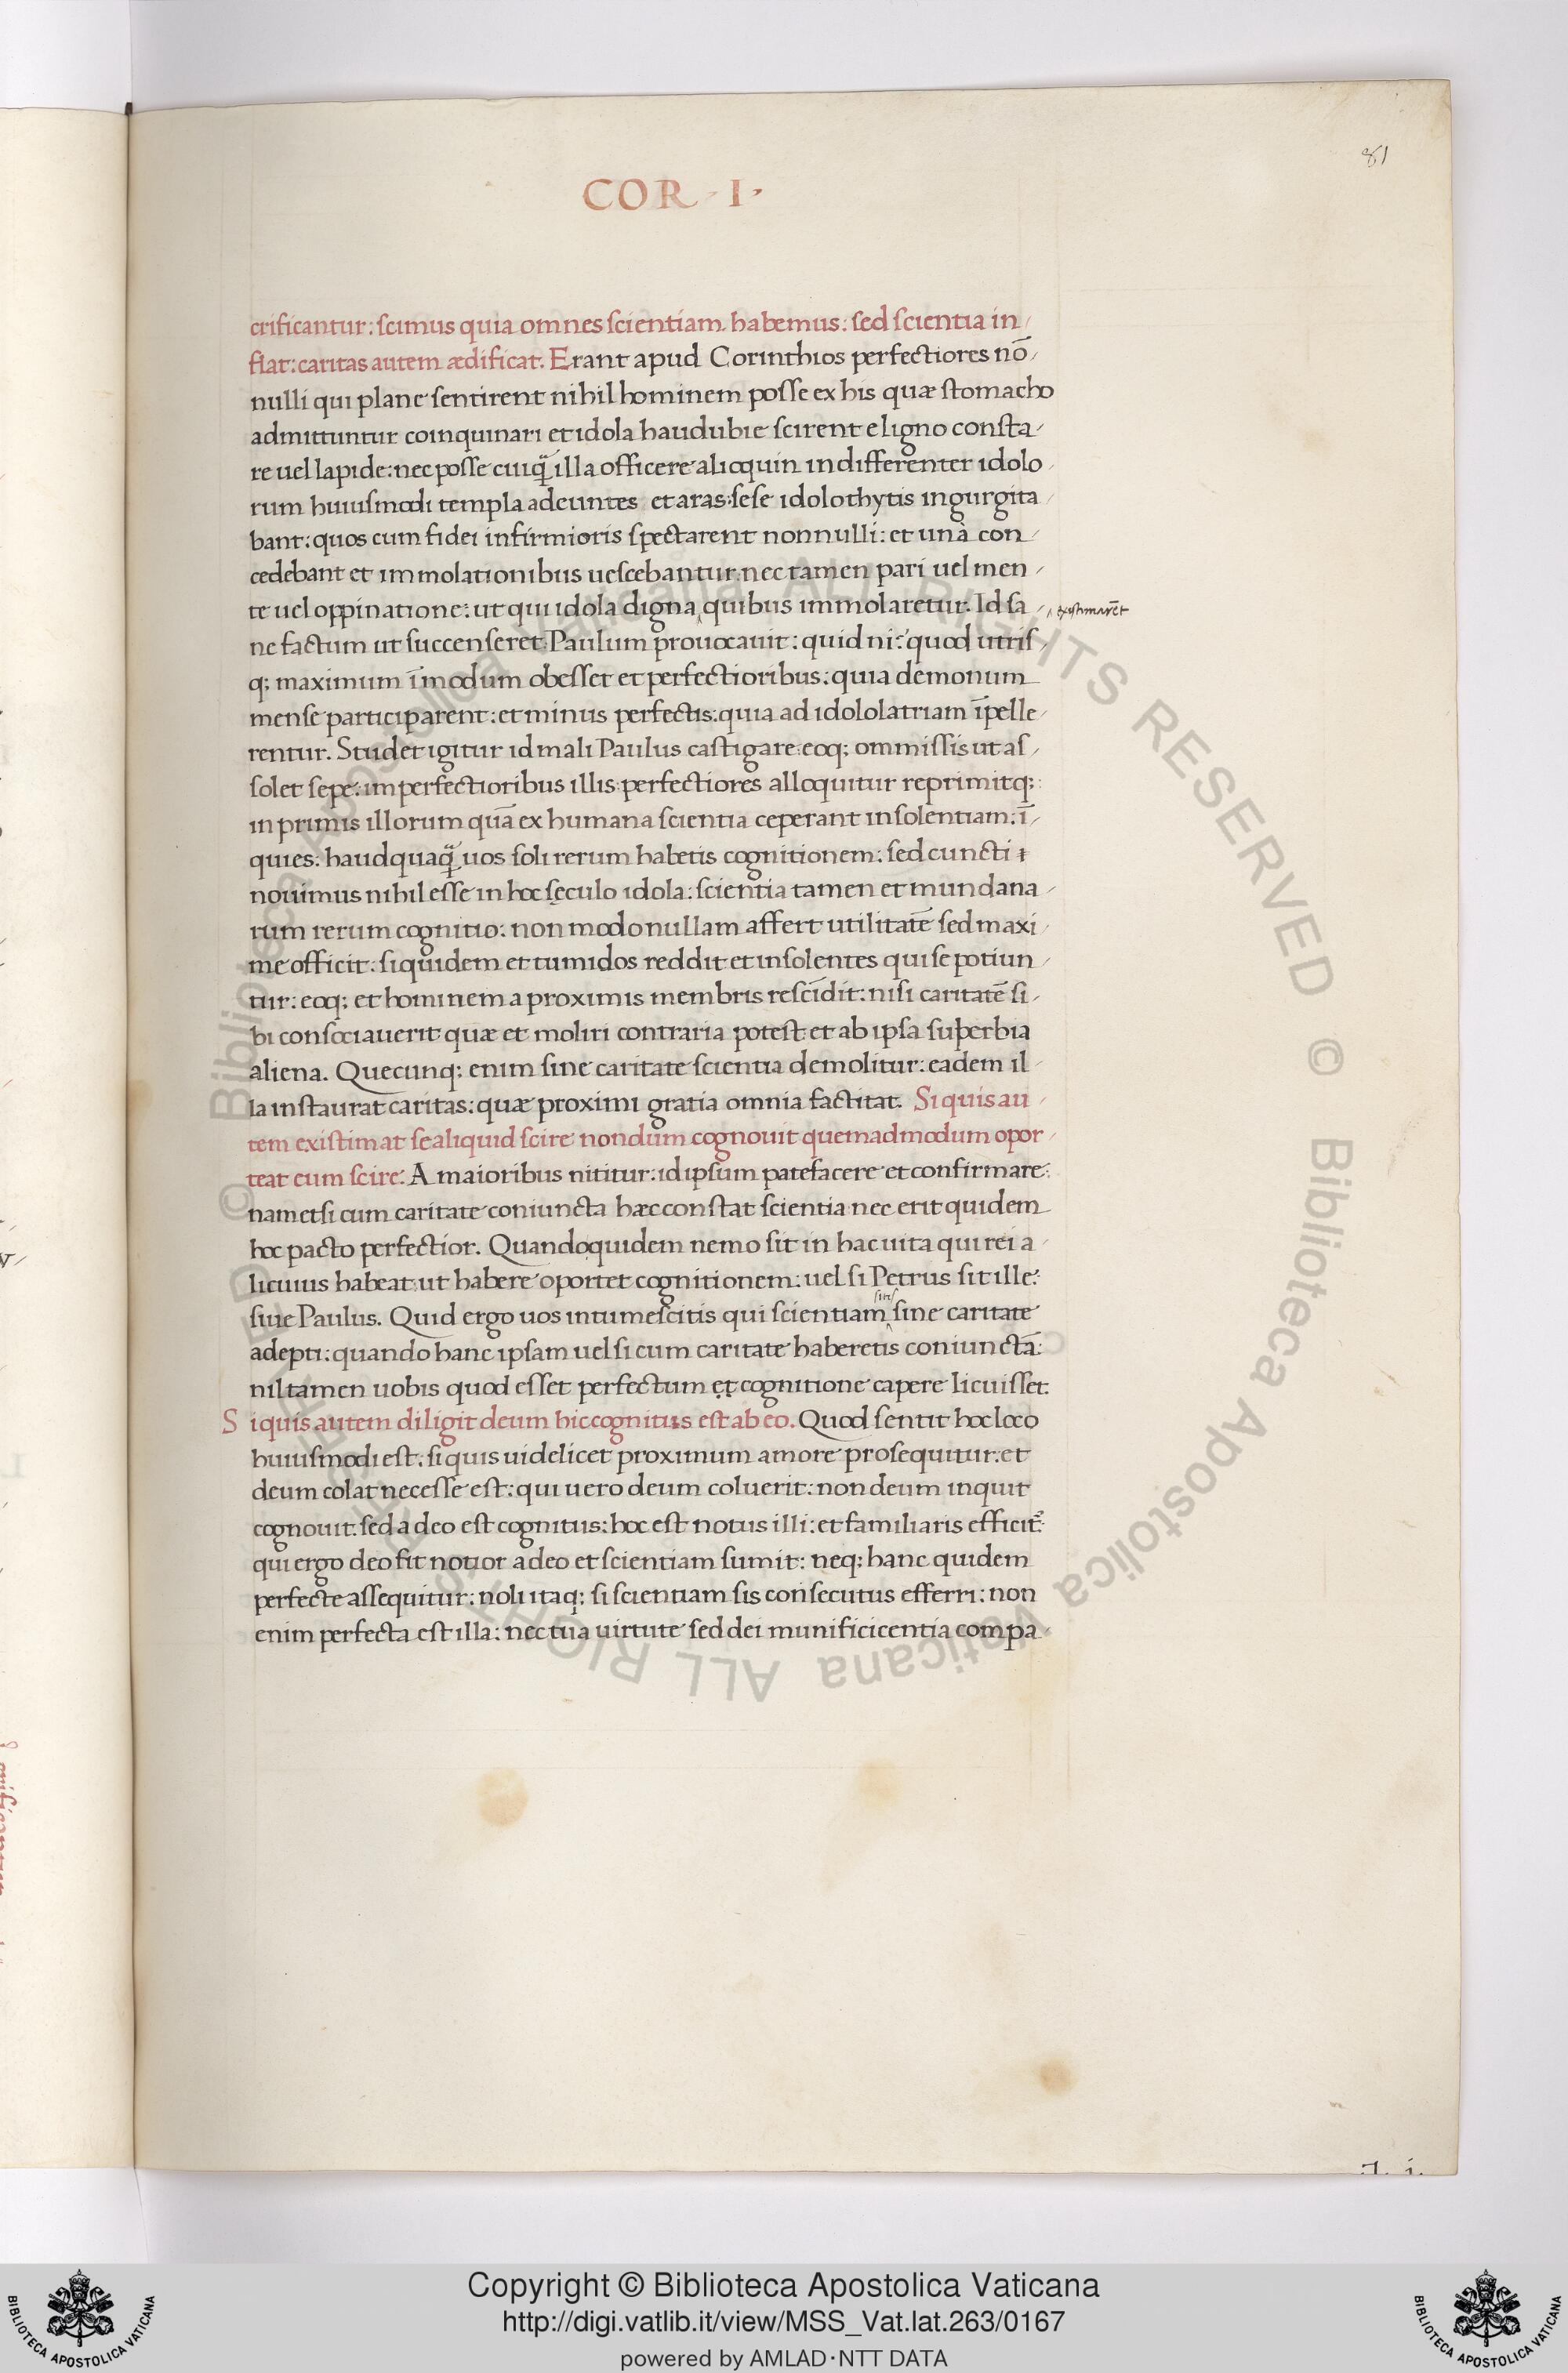 81
COR · I ·
crificantur: scimus quia omnes scientiam habemus: sed scientia in/
flat: caritas autem ædificat. Erant apud Corinthios perfectiores nō/
nulli qui plane sentirent nihil hominem posse ex his quæ stomacho
admittuntur coinquinari et idola haudubie scirent e ligno consta/
re uel lapide: nec posse cuiq̄ illa officere alioquin indifferenter idolo/
rum huiusmodi templa adeuntes et aras: sese idolothytis ingurgita/
bant: quos cum fidei infirmioris spectarent nonnulli: et unà con/
cedebant et immolationibus uescebantur: nec tamen pari uel men/
te uel oppinatione: ut qui idola digna ‸ quibus immolaretur. Id sa/ ‸ existimarēt
ne factum ut succenseret Paulum prouocauit: quid ni? quod utris/
q; maximum ī modum obesset et perfectioribus: quia demonum
mense participarent: et minus perfectis: quia ad idololatriam īpelle/
rentur. Studet igitur id mali Paulus castigare: eoq; ommissis ut as/
solet sepe: imperfectioribus illis: perfectiores alloquitur reprimitq;:
in primis illorum quā ex humana scientia ceperant insolentiam: ī/
quies: haudquaq̄ uos soli rerum habetis cognitionem: sed cuncti
nouimus nihil esse in hoc seculo idola: scientia tamen et mundana/
rum rerum cognitio: non modo nullam affert utilitatē sed maxi/
me officit: siquidem et tumidos reddit et insolentes qui se potiun/
tur: eoq; et hominem a proximis membris rescīdit: nisi caritatē si/
bi consociauerit quæ et moliri contraria potest et ab ipsa superbia
aliena. Quecunq; enim sine caritate scientia demolitur: eadem il/
la instaurat caritas: quæ proximi gratia omnia factitat. Si quis au/
tem existimat se aliquid scire nondum cognouit quemadmodum opor/
teat eum scire. A maioribus nititur: id ipsum patefacere et confirmare:
nam etsi cum caritate coniuncta hæc constat scientia nec erit quidem
hoc pacto perfectior. Quandoquidem nemo sit in hac uita qui rei a/
licuius habeat ut habere oportet cognitionem: uel si Petrus sit ille:
siue Paulus. Quid ergo uos intumescitis qui scientiam ‸ sine caritate
adepti: quando hanc ipsam uel si cum caritate haberetis coniunctā:
nil tamen uobis quod esset perfectum et cognitione capere licuisset.
Si quis autem diligit deum hic cognitus est ab eo. Quod sentit hoc loco
huiusmodi est: si quis uidelicet proximum amore prosequitur: et
deum colat necesse est: qui uero deum coluerit: non deum inquit
cognouit: sed a deo est cognitus: hoc est notus illi: et familiaris efficit̄:
qui ergo deo fit notior a deo et scientiam sumit: neq; hanc quidem
perfecte assequitur: noli itaq; si scientiam sis consecutus efferri: non
enim perfecta est illa: nec tua uirtute sed dei munificicentia compa/
© Biblioteca Apostolica Vaticana ALL RIGHTS RESERVED © Biblioteca Apostolica Vaticana ALL RIGHTS RESERVED
Copyright © Biblioteca Apostolica Vaticana
http://digi.vatlib.it/view/MSS_Vat.lat.263/0167
powered by AMLAD·NTT DATA
BIBLIOTECA APOSTOLICA VATICANA
BIBLIOTECA APOSTOLICA VATICANA